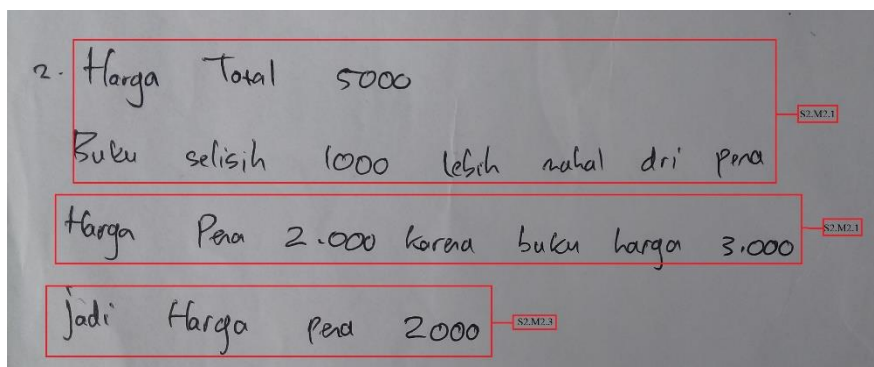 2. Harga Total 5000
S2.M2.1
Buku selisih 1000 lebih mahal dri pena
Harga Pena 2.000 karena buku harga 3.000
S2.M2.1
jadi Harga pena 2000
S2.M2.3